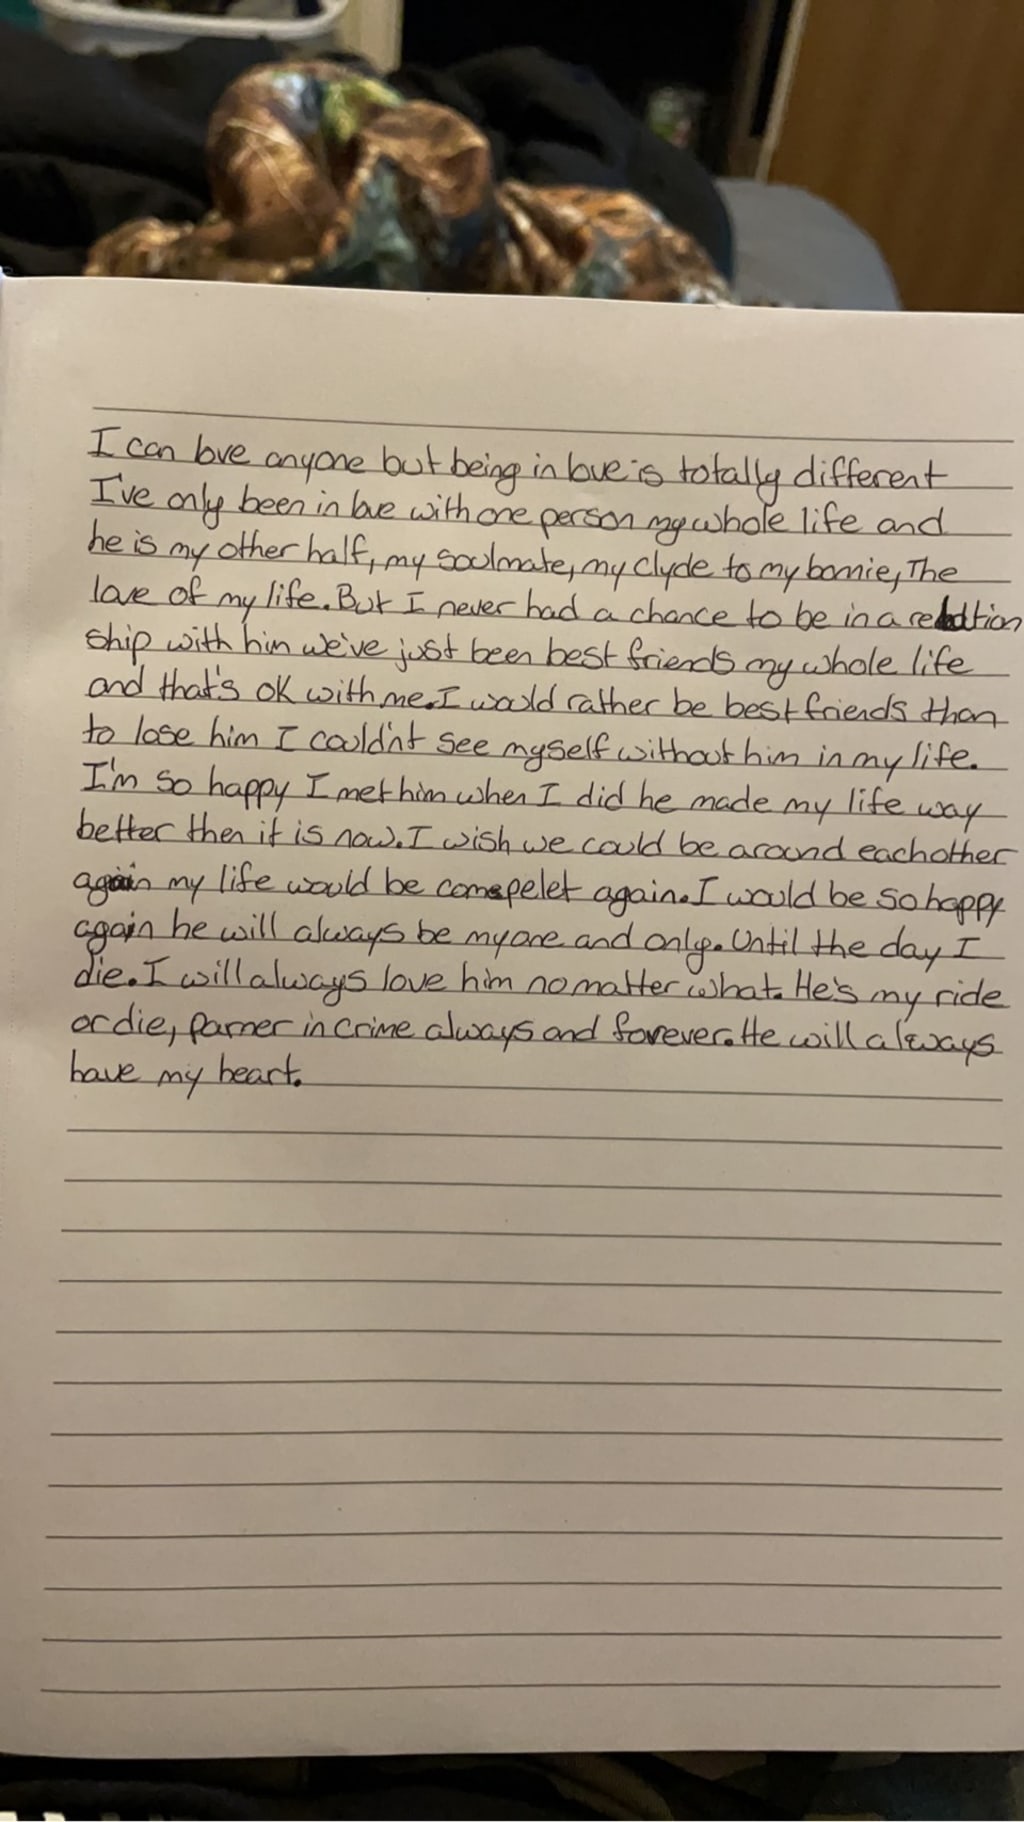 I can love anyone but being in love is totally different
I've only been in love with one person my whole life and
he is my other half, my soulmate, my clyde to my bonnie, The
love of my life. But I never had a chance to be in a relation
ship with him we've just been best friends my whole life
and that's ok with me. I would rather be best friends than
to lose him I couldn't see myself without him in my life.
I'm so happy I met him when I did he made my life way
better then it is now. I wish we could be around eachother
again my life would be comepelet again. I would be so happy
again he will always be my one and only. Until the day I
die. I will always love him no matter what. He's my ride
or die, parner in crime always and forever. He will always
have my heart.